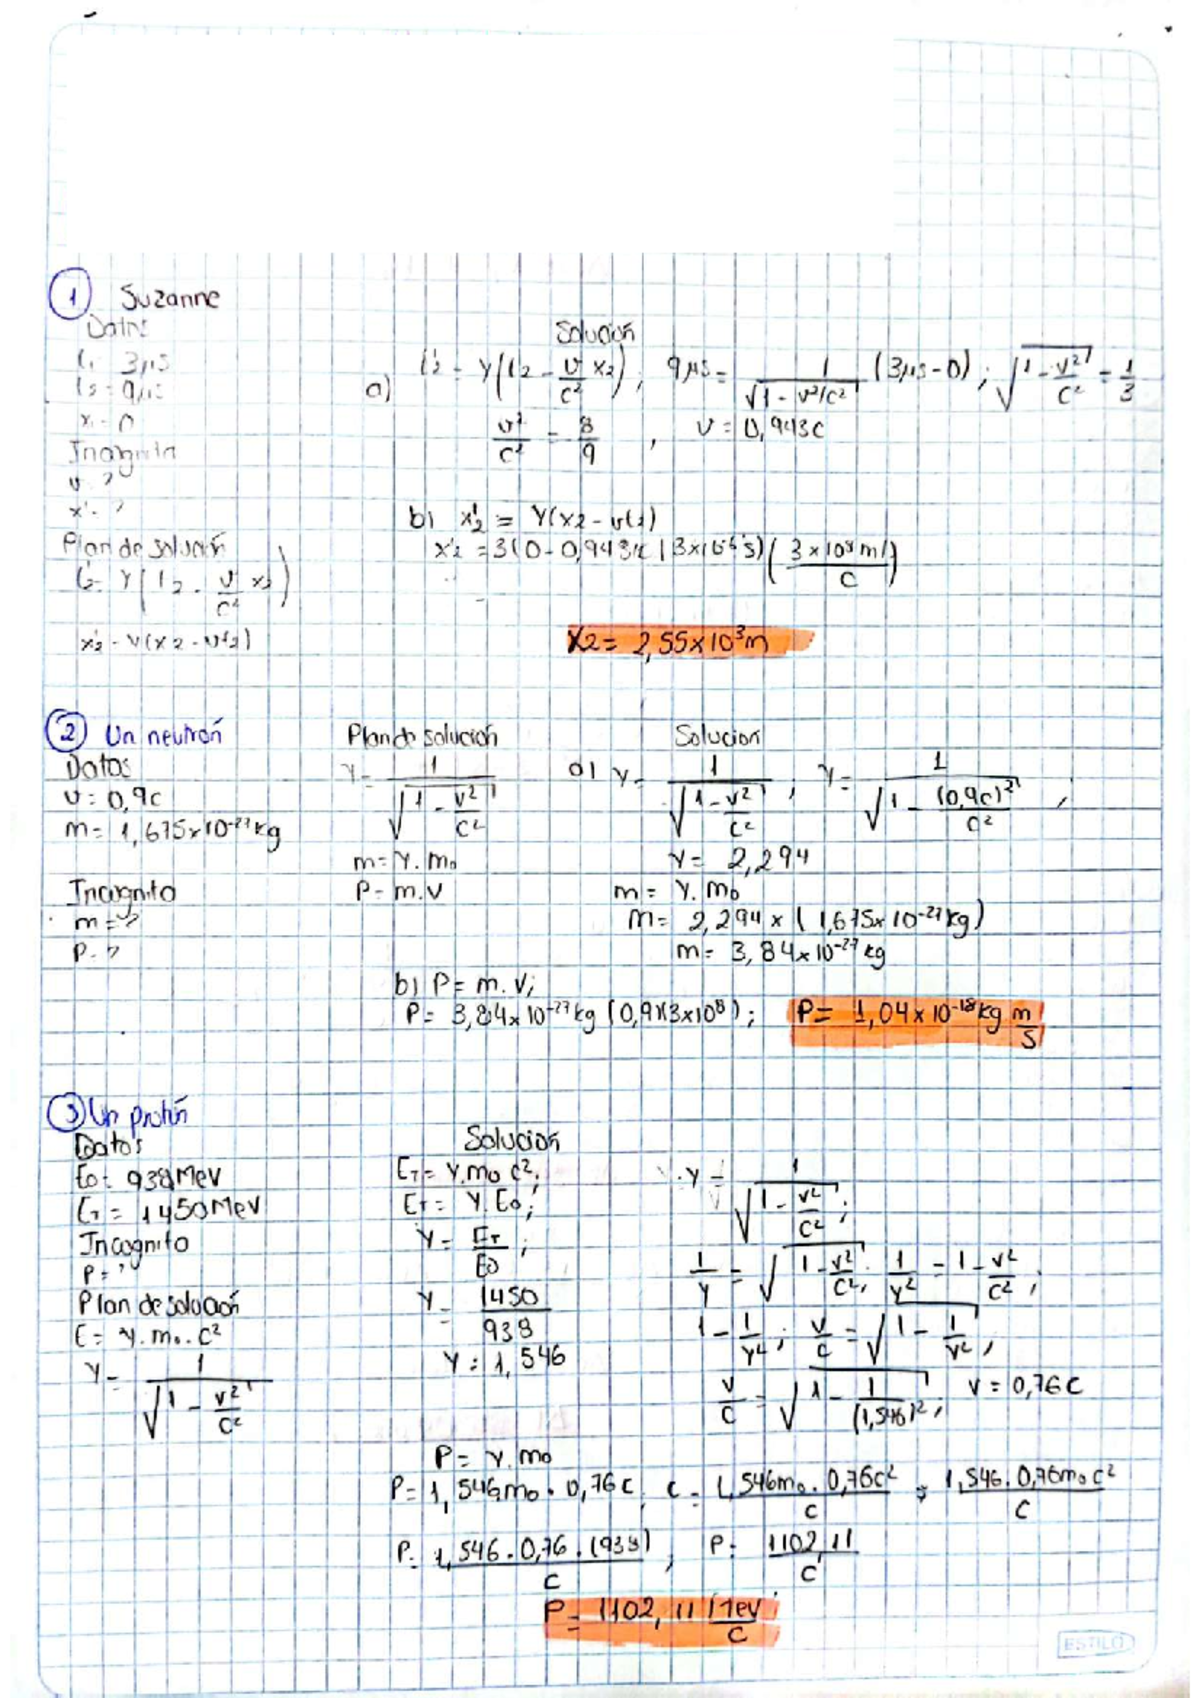 1 Suzanne
Datos
t₁ 3μs
t₂ = 9μs
x = 0
Incognita
v = ?
x' = ?
Plan de solución
t'₂ = γ(t₂ - v/c² x₂)
x'₂ = γ(x₂ - vt₂)
Solución
a) t'₂ = γ(t₂ - v/c² x₂); 9μs = 1/√(1 - v²/c²) (3μs - 0); √(1 - v²/c²) = 1/3
v²/c² = 8/9 , v = 0,943c
b) x'₂ = γ(x₂ - vt₂)
x'₂ = 3(0 - 0,943c)(3x10⁻⁶s)(3x10⁸m/c)
X2 = 2,55x10³m
2 Un neutrón
Datos
v = 0,9c
m = 1,675x10⁻²⁷kg
Incognito
m = ?
P = ?
Plan de solución
γ = 1/√(1 - v²/c²)
m = γ.m₀
P = m.v
Solucion
a) γ = 1/√(1 - v²/c²) , γ = 1/√(1 - (0,9c)²/c²) ,
γ = 2,294
m = γ.m₀
m = 2,294 x (1,675x10⁻²⁷kg)
m = 3,84x10⁻²⁷kg
b) P = m.v;
P = 3,84x10⁻²⁷kg (0,9x3x10⁸);
P = 1,04x10⁻¹⁸kg m/s
3 Un protón
Datos
E₀ = 938MeV
Eᴛ = 1450MeV
Incognito
P = ?
Plan de solución
E = γ.m₀.c²
γ = 1/√(1 - v²/c²)
Solución
Eᴛ = γ.m₀c²;
Eᴛ = γ.E₀;
γ = Eᴛ/E₀;
γ = 1450/938
γ = 1,546
γ = 1/√(1 - v²/c²);
1/γ = √(1 - v²/c²), 1/γ² = 1 - v²/c²;
1 - 1/γ⁴; v/c = √(1 - 1/γ²),
v/c = √(1 - 1/(1,546)²), v = 0,76c
P = γ.m₀
P = 1,546m₀ · 0,76c, c = 1,546m₀ · 0,76c²/c ; 1,546. 0,76m₀c²/c
P = 1,546 . 0,76 . (938)/c , P = 1102,11/c
P = 1102,11 Mev/c
ESTILO